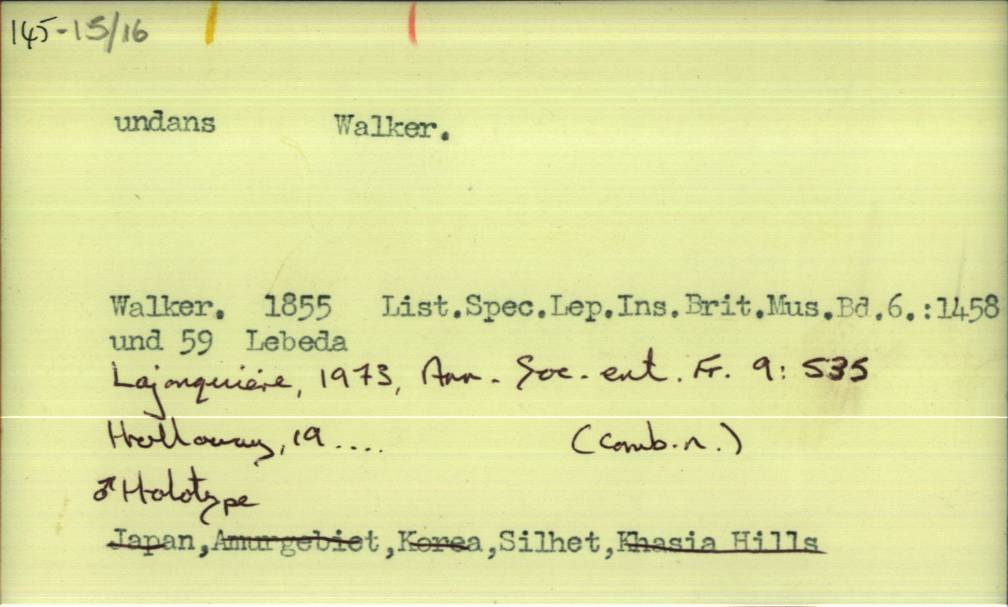 145-15/16
undans Walker.
Walker. 1855 List.Spec.Lep.Ins.Brit.Mus.Bd.6.:1458
und 59 Lebeda
Lajonquière, 1973, Ann. Soc. ent. Fr. 9: 535
Holloway, 19.... (comb.n.)
♂ Holotype
Japan,Amurgebiet,Korea,Silhet,Khasia Hills